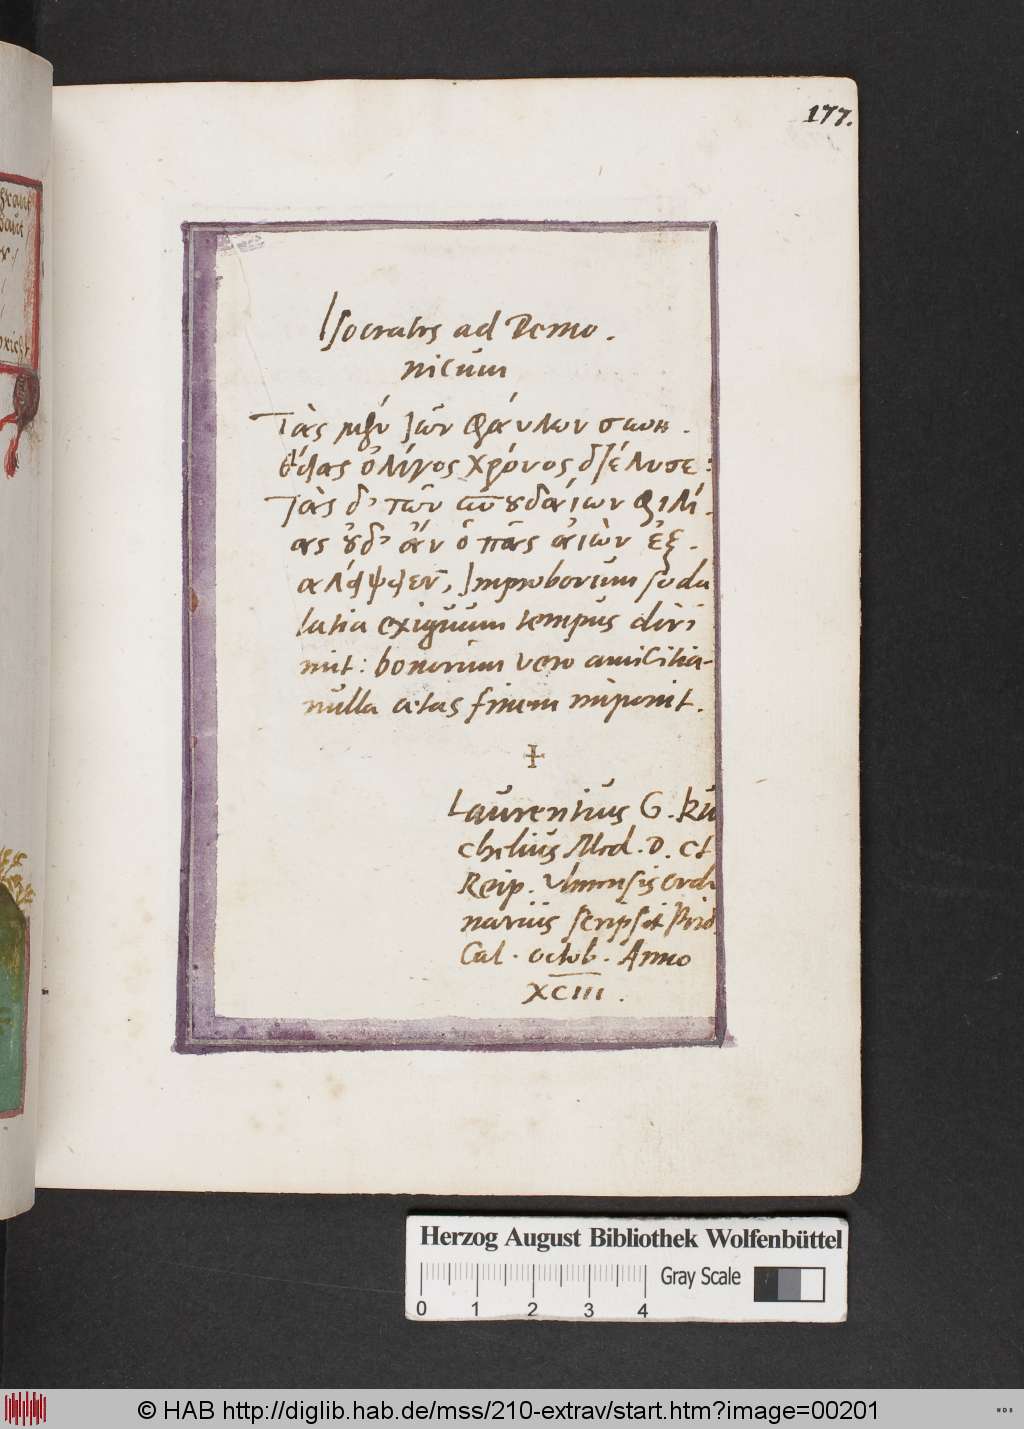 177.
Isocrates ad Demo.
nicum
Τὰς μὲν τῶν φαύλων συνη.
θείας ὀλίγος χρόνος διέλυσε:
τὰς δ' τῶν σπουδαίων φιλί.
ας οὐδ' ἄν ὁ πᾶς αἰὼν ἐξ.
αλείψειεν, Improborum soda
latia exiguum tempus diri
mit: bonorum vero amicitia-
nulla ætas finem imponit.
Laurentius G. Ku
chelius Med. D. et
Reip. Ulmensis ordi
narius scripsit Prid.
Cal. octob. Anno
XCIII.
Herzog August Bibliothek Wolfenbüttel
0 1 2 3 4 Gray Scale
© HAB http://diglib.hab.de/mss/210-extrav/start.htm?image=00201